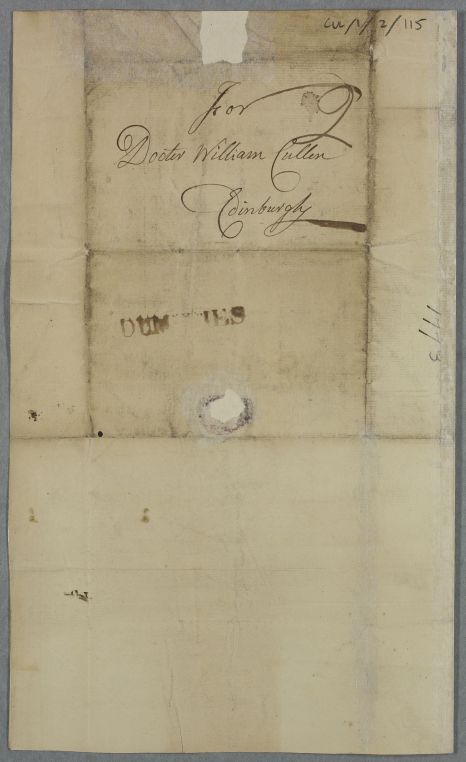 CUL/1/2/115
For
Docter William Cullen
Edinburgh
DUM IES